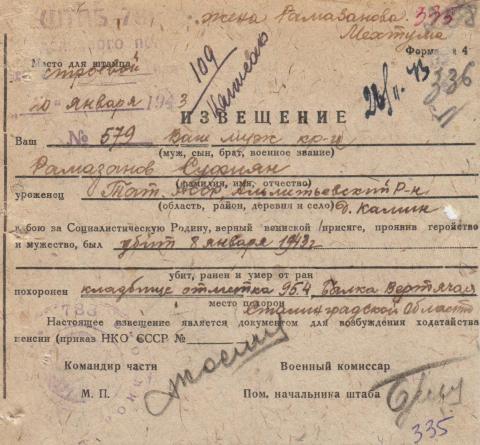 ШТАБ 78
жена Рамазанова 335
Мехтума
Форма 4
Место для штампа
строевой
336
20 января 1943
109
Написано
28/II 43
ИЗВЕЩЕНИЕ
№ 579
Ваш Ваш муж кр-ц
(муж, сын, брат, военное звание)
Рамазанов Суфиян
(фамилия, имя, отчество)
уроженец Тат. АССР, Альметьевский р-н
(область, район, деревня и село) д. Калин
в бою за Социалистическую Родину, верный воинской присяге, проявив геройство
и мужество, был убит 8 января 1943 г
убит, ранен и умер от ран
похоронен кладбище отметка 95.4 Балка Вертячая
место похорон
Сталинградской Области
Настоящее извещение является документом для возбуждения ходатайства
пенсии (приказ НКО СССР №
Командир части
Военный комиссар
М. П.
Пом. начальника штаба
335